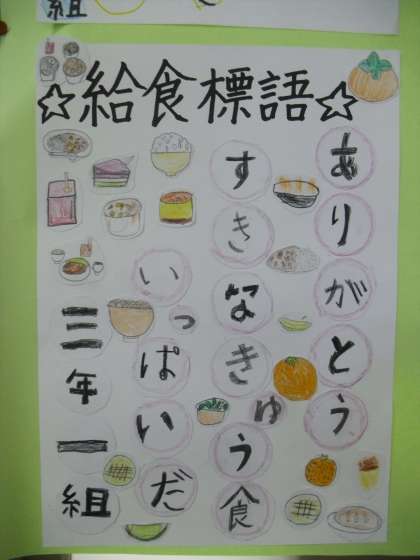 組
☆給食標語☆
ありがとう
すきなきゅう食
いっぱいだ
三年一組